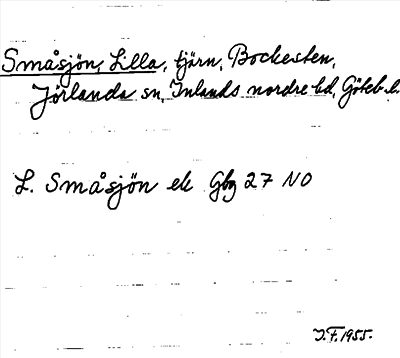 Småsjön, Lilla, tjärn, Bockesten,
Jörlanda sn, Inlands nordre hd, Göteb. l.
L. Småsjön ek Gbg 27 NO
J.F. 1955.